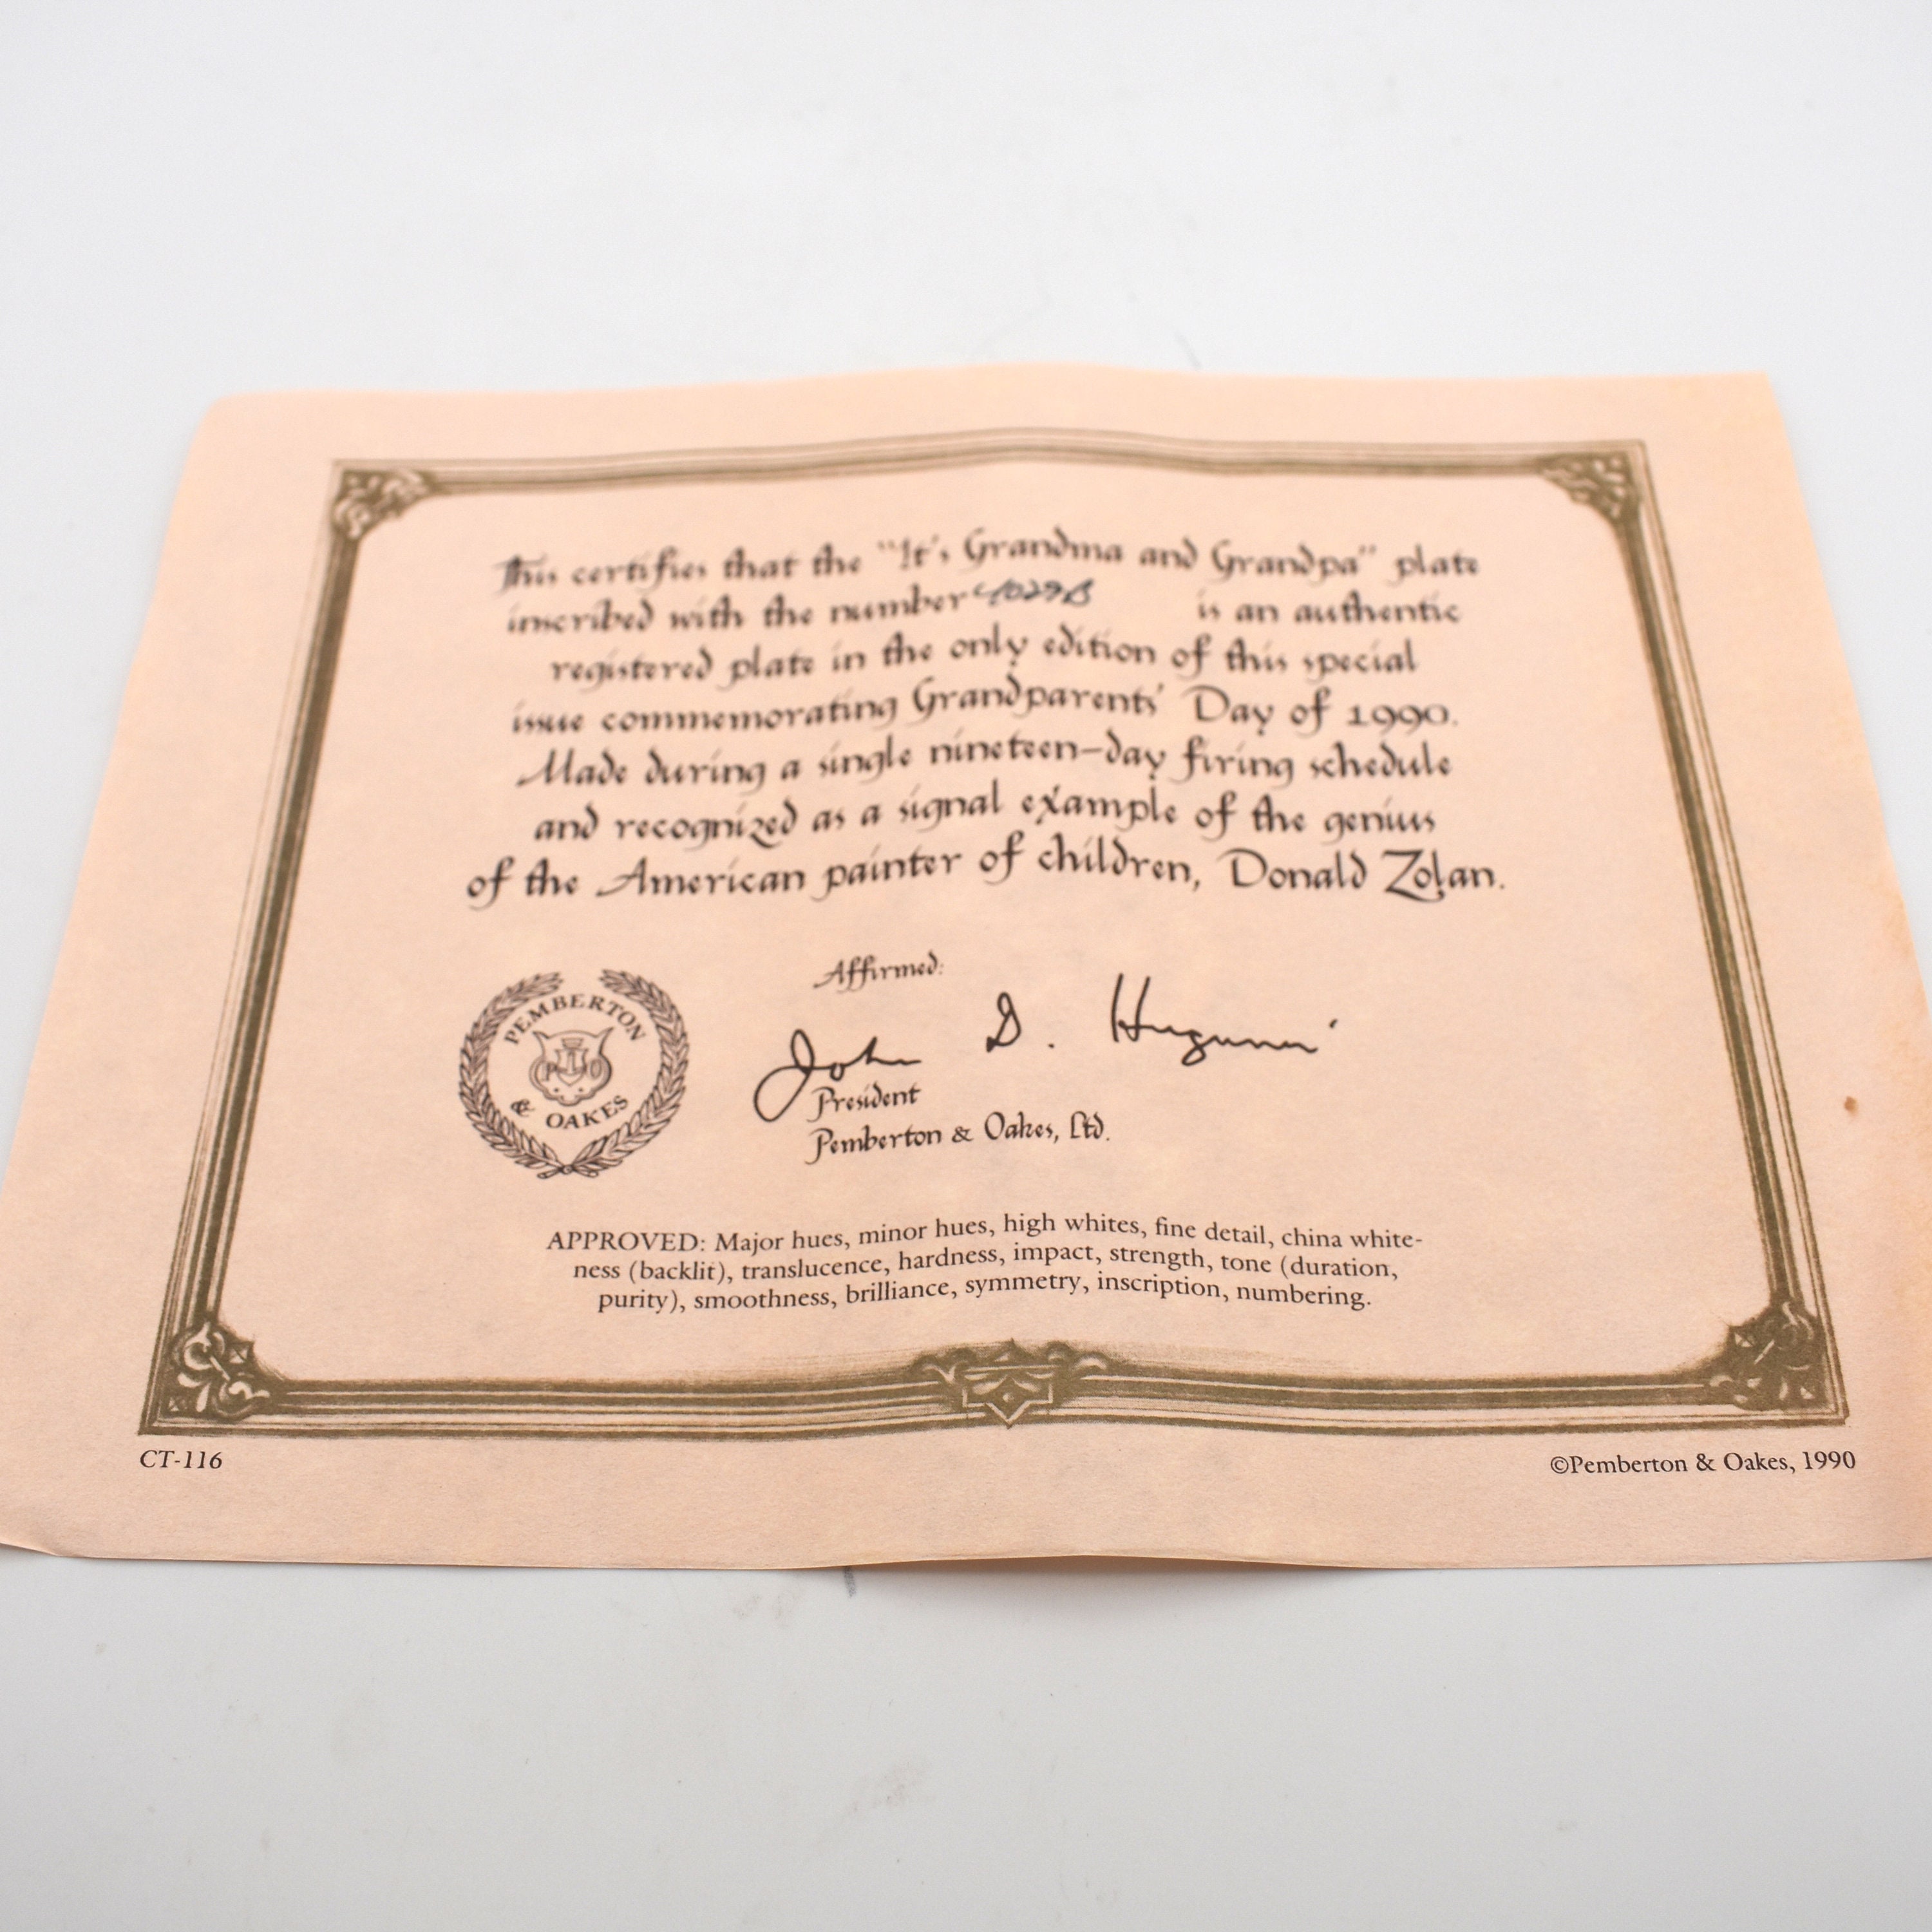 This certifies that the "It's Grandma and Grandpa" plate
inscribed with the number is an authentic
registered plate in the only edition of this special
issue commemorating Grandparents' Day of 1990.
Made during a single nineteen-day firing schedule
and recognized as a signal example of the genius
of the American painter of children, Donald Zolan.
Affirmed:
John D.
President
Pemberton & Oakes, Ltd.
PEMBERTON
P O
& OAKES
APPROVED: Major hues, minor hues, high whites, fine detail, china white-
ness (backlit), translucence, hardness, impact, strength, tone (duration,
purity), smoothness, brilliance, symmetry, inscription, numbering.
CT-116
©Pemberton & Oakes, 1990